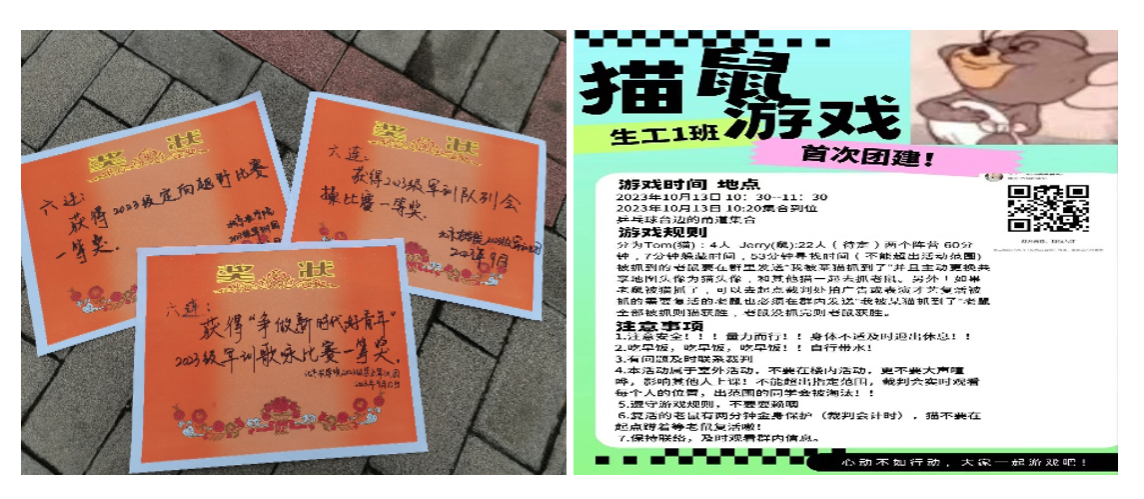 奖状
六连:
获得2023级定向越野比赛
一等奖.
奖状
六连:
获得2023级军训队列会
操比赛一等奖.
2023年9月
奖状
六连:
获得“争做新时代好青年”
2023级军训歌咏比赛一等奖.
猫鼠游戏
生工1班
首次团建!
游戏时间 地点
2023年10月13日 10:30--11:30
2023年10月13日 10:20集合到位
乒乓球台边的甬道集合
游戏规则
分为Tom(猫):4人 Jerry(鼠):22人(待定)两个阵营 60分
钟,7分钟躲藏时间,53分钟寻找时间(不能超出活动范围)
被抓到的老鼠要在群里发送“我被某猫抓到了”并且主动更换共
享地图头像为猫头像,和其他猫一起去抓老鼠。另外!如果
老鼠被猫抓了,可以去起点裁判处拍广告或表演才艺复活被
抓的需要复活的老鼠也必须在群内发送“我被某猫抓到了”老鼠
全部被抓则猫获胜,老鼠没抓完则老鼠获胜。
注意事项
1.注意安全!!!量力而行!!身体不适及时退出休息!!
2.吃早饭,吃早饭,吃早饭!!自行带水!
3.有问题及时联系裁判
4.本活动属于室外活动,不要在楼内活动,更不要大声喧
哗,影响其他人上课!不能超出指定范围,裁判会实时观看
每个人的位置,出范围的同学会被淘汰!!
5.遵守游戏规则,不要耍赖哦
6.复活的老鼠有两分钟金身保护(裁判会计时),猫不要在
起点蹲着等老鼠复活嗷!
7.保持联络,及时观看群内信息。
心动不如行动,大家一起游戏吧!